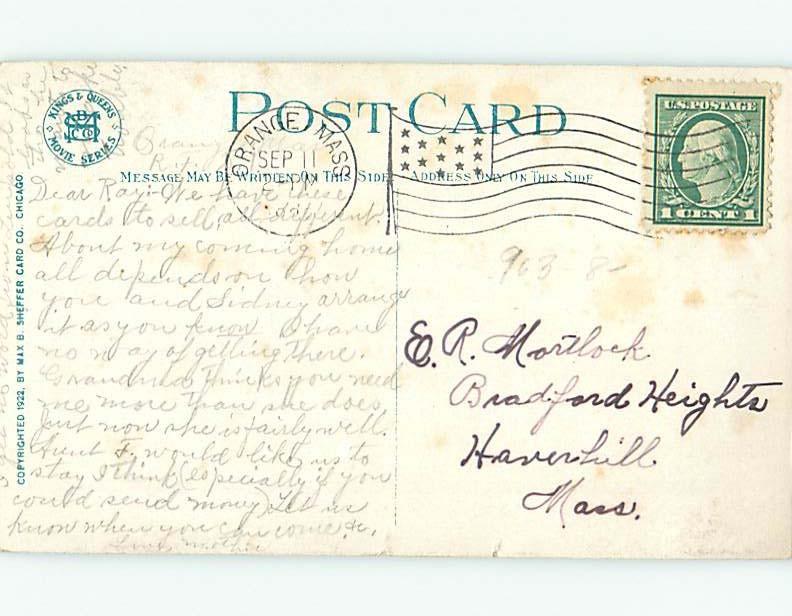 POST CARD
KINGS & QUEENS
MOVIE SERIES
ORANGE, MASS.
SEP 11
U.S. POSTAGE
1 CENT 1
MESSAGE MAY BE WRITTEN ON THIS SIDE
ADDRESS ONLY ON THIS SIDE
COPYRIGHTED 1922, BY MAX B. SHEFFER CARD CO. CHICAGO
Dear Ray:- We have these
cards to sell, all different.
About my coming home
all depends on how
you and Sidney arrange
it as you know I have
no way of getting there.
Grandma thinks you need
me more than she does
just now she is fairly well.
Aunt F. would like us to
stay I think (especially if you
could send money) Let us
know when you can come &c.
Love, Mother
963 8
E. R. Mortlock
Bradford Heights
Haverhill
Mass.